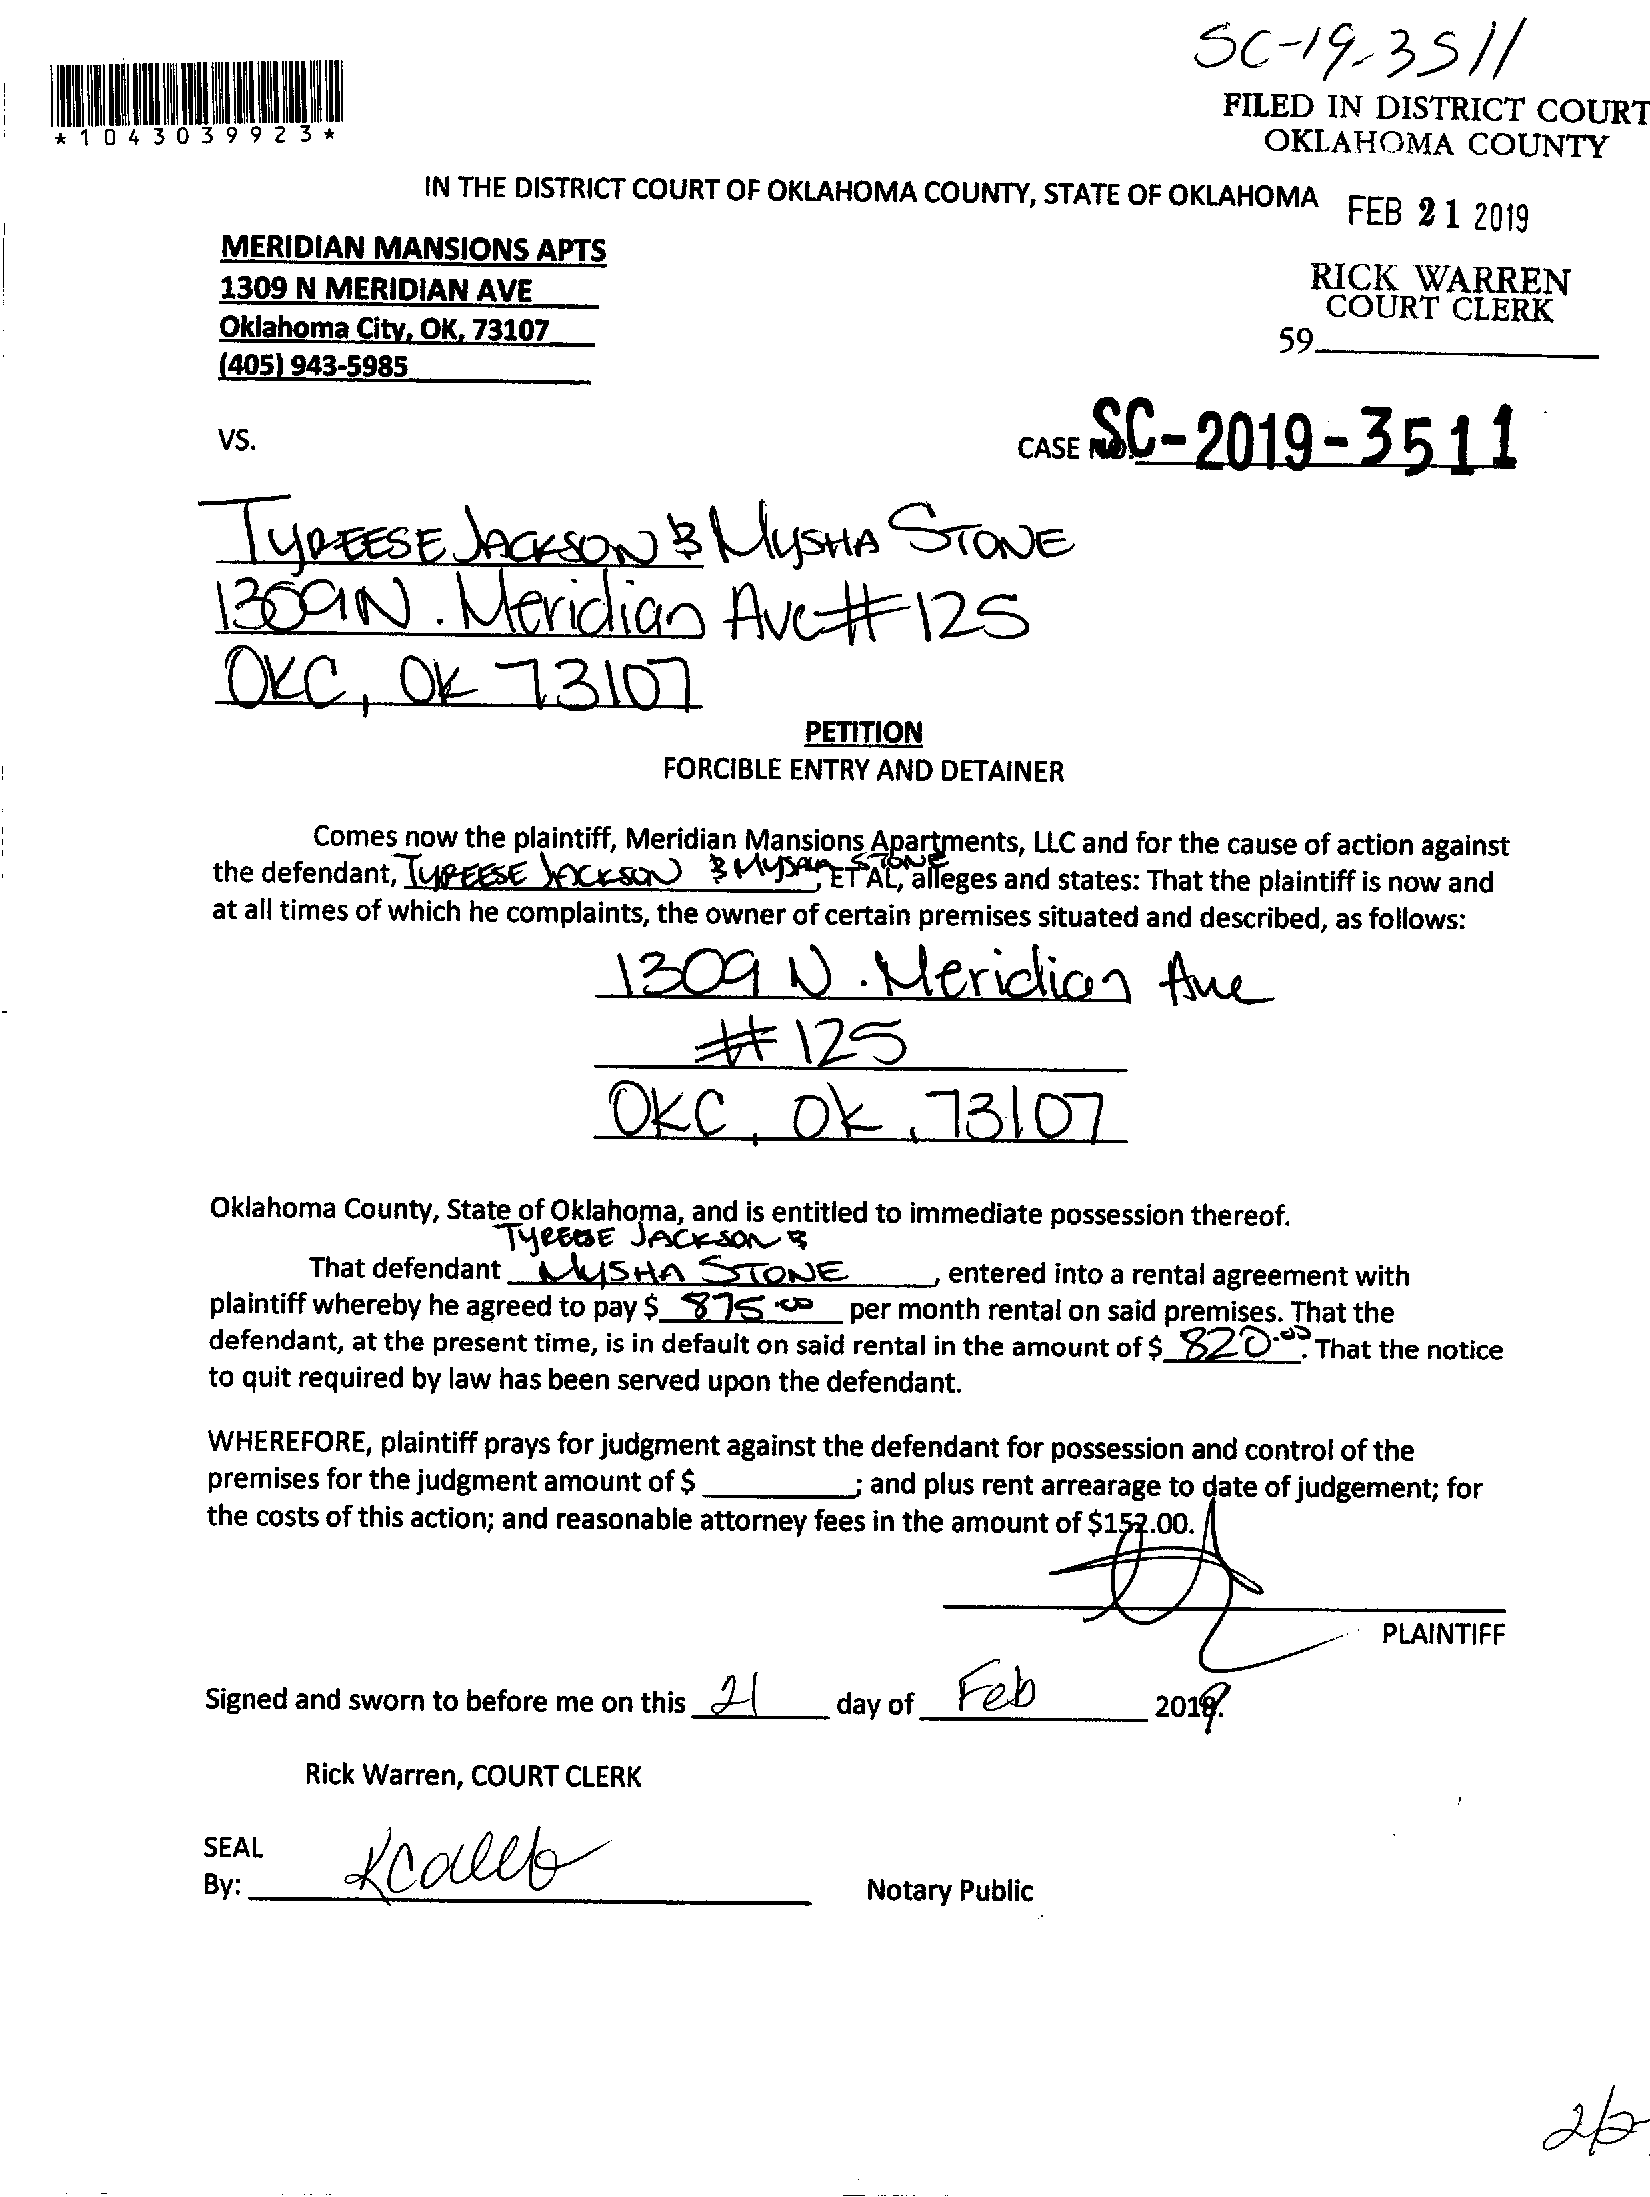 SC-19-3511
FILED IN DISTRICT COURT
OKLAHOMA COUNTY
*1043039923*
IN THE DISTRICT COURT OF OKLAHOMA COUNTY, STATE OF OKLAHOMA
FEB 21 2019
MERIDIAN MANSIONS APTS
1309 N MERIDIAN AVE
Oklahoma City, OK, 73107
(405) 943-5985
RICK WARREN
COURT CLERK
59
VS.
CASE NO. SC-2019-3511
TYREESE JACKSON & MYSHA STONE
1309 N. Meridian Ave #125
OKC, OK 73107
PETITION
FORCIBLE ENTRY AND DETAINER
Comes now the plaintiff, Meridian Mansions Apartments, LLC and for the cause of action against
the defendant, TYREESE JACKSON & MYSHA STONE, ET AL, alleges and states: That the plaintiff is now and
at all times of which he complaints, the owner of certain premises situated and described, as follows:
1309 N. Meridian Ave
#125
OKC, OK, 73107
Oklahoma County, State of Oklahoma, and is entitled to immediate possession thereof.
TYREESE JACKSON &
That defendant MYSHA STONE, entered into a rental agreement with
plaintiff whereby he agreed to pay $ 875.00 per month rental on said premises. That the
defendant, at the present time, is in default on said rental in the amount of $ 820.00. That the notice
to quit required by law has been served upon the defendant.
WHEREFORE, plaintiff prays for judgment against the defendant for possession and control of the
premises for the judgment amount of $ ; and plus rent arrearage to date of judgement; for
the costs of this action; and reasonable attorney fees in the amount of $152.00.
PLAINTIFF
Signed and sworn to before me on this 21 day of Feb 2019.
Rick Warren, COURT CLERK
SEAL
By: KCaleb
Notary Public